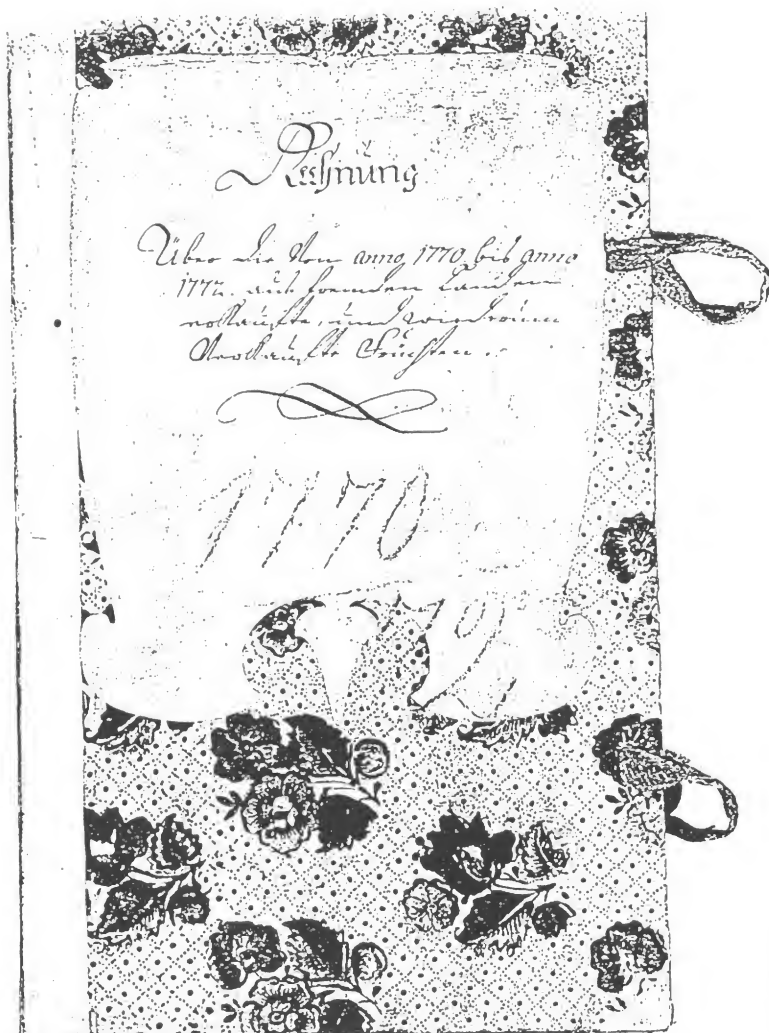 Rechnung
Über die Von anno 1770 bis anno
1772. aus fremden Landen
erkaufte, und wiederum
Verkaufte Früchten.
1770